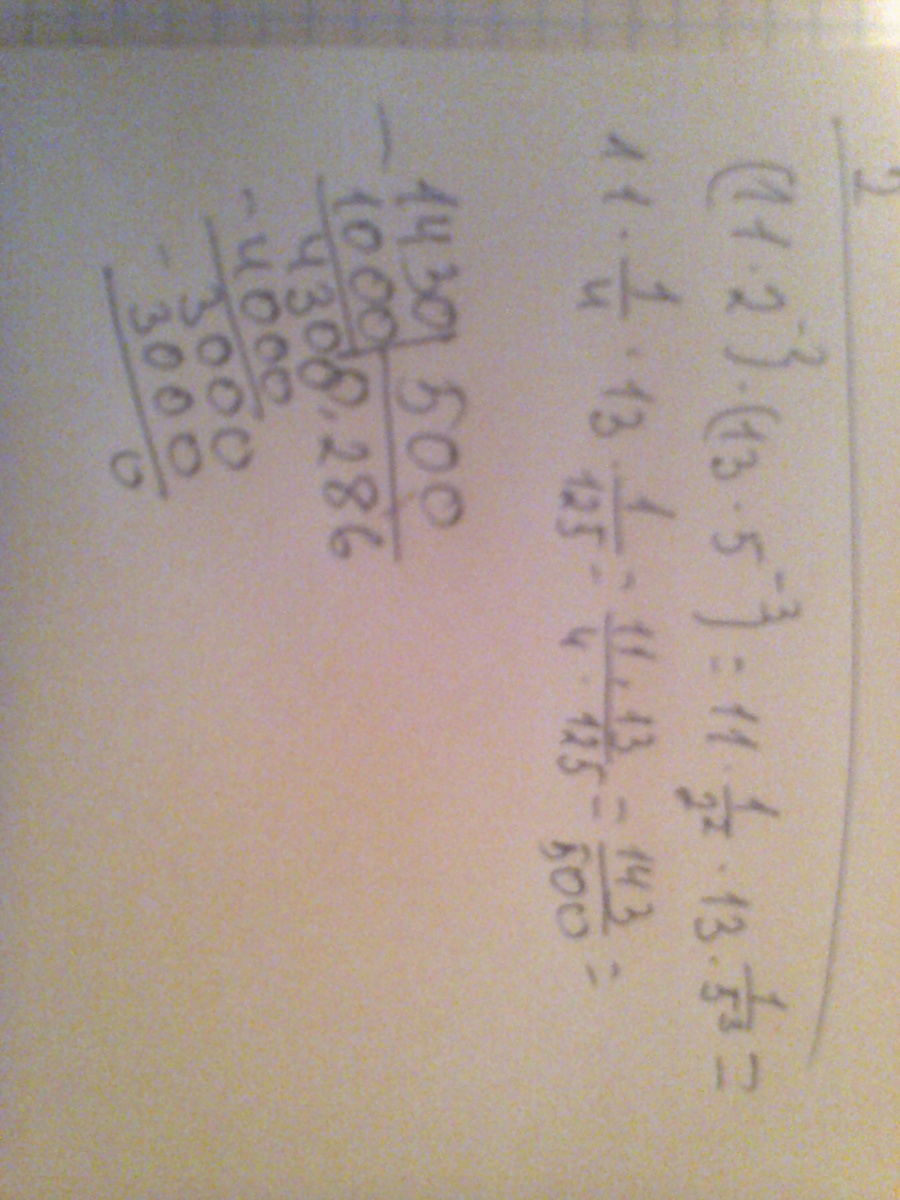 2
(11 · 2⁻²) · (13 · 5⁻³) = 11 · 1/2² · 13 · 1/5³ =
11 · 1/4 · 13 1/125 = 11 · 13/4 · 125 = 143/500 =
1430 | 500
- 1000 | 0,286
4300
- 4000
3000
- 3000
0